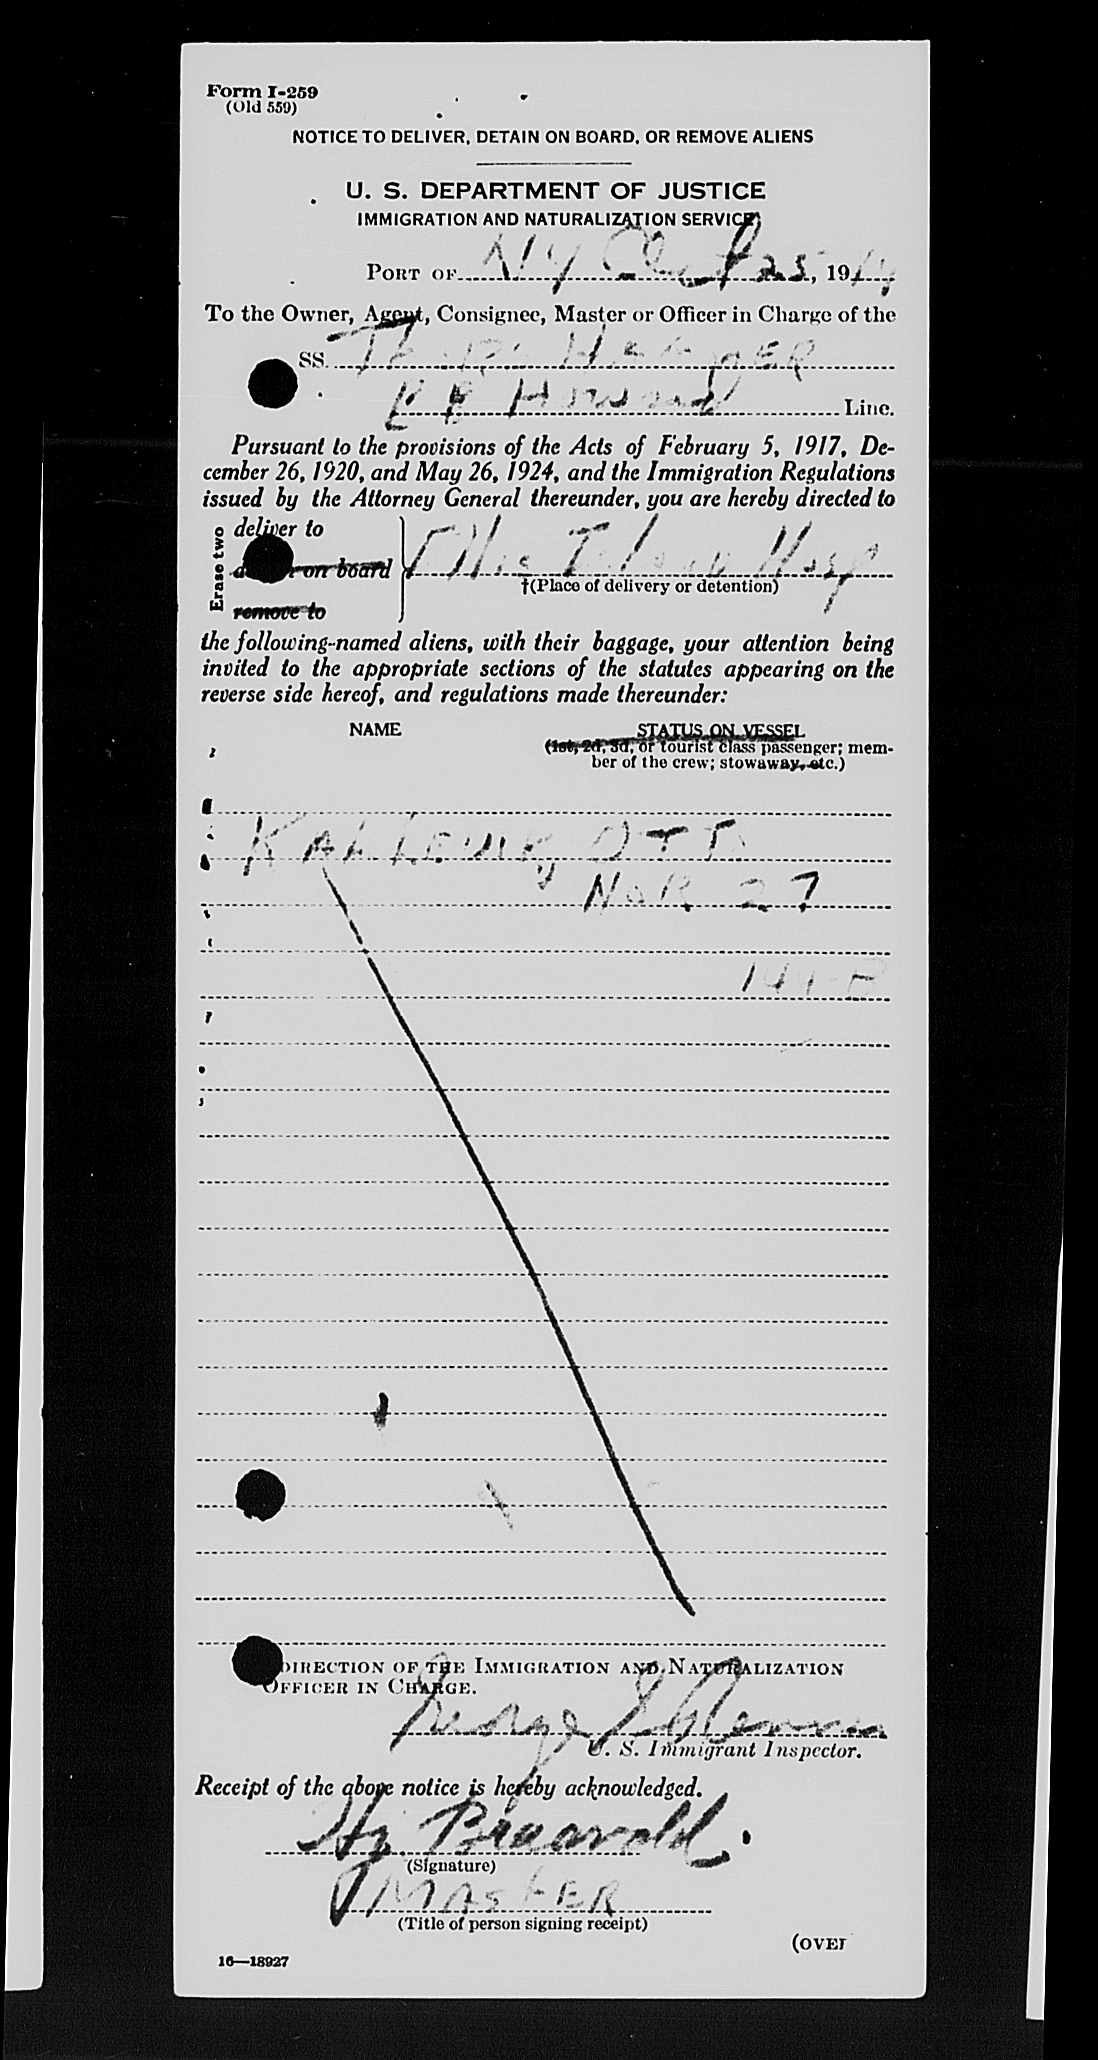 Form I-259
(Old 559)
NOTICE TO DELIVER, DETAIN ON BOARD, OR REMOVE ALIENS
U. S. DEPARTMENT OF JUSTICE
IMMIGRATION AND NATURALIZATION SERVICE
PORT OF NY 25, 19
To the Owner, Agent, Consignee, Master or Officer in Charge of the
SS.
Howard Line.
Pursuant to the provisions of the Acts of February 5, 1917, De-
cember 26, 1920, and May 26, 1924, and the Immigration Regulations
issued by the Attorney General thereunder, you are hereby directed to
Erase two
deliver to
on board Ellis Island Hosp
remove to
†(Place of delivery or detention)
the following-named aliens, with their baggage, your attention being
invited to the appropriate sections of the statutes appearing on the
reverse side hereof, and regulations made thereunder:
NAME STATUS ON VESSEL
(1st, 2d, 3d, or tourist class passenger; mem-
ber of the crew; stowaway, etc.)
OTTO
NOR. 27
DIRECTION OF THE IMMIGRATION AND NATURALIZATION
OFFICER IN CHARGE.
George
U. S. Immigrant Inspector.
Receipt of the above notice is hereby acknowledged.
(Signature)
MASTER
(Title of person signing receipt)
(OVER
16—18927